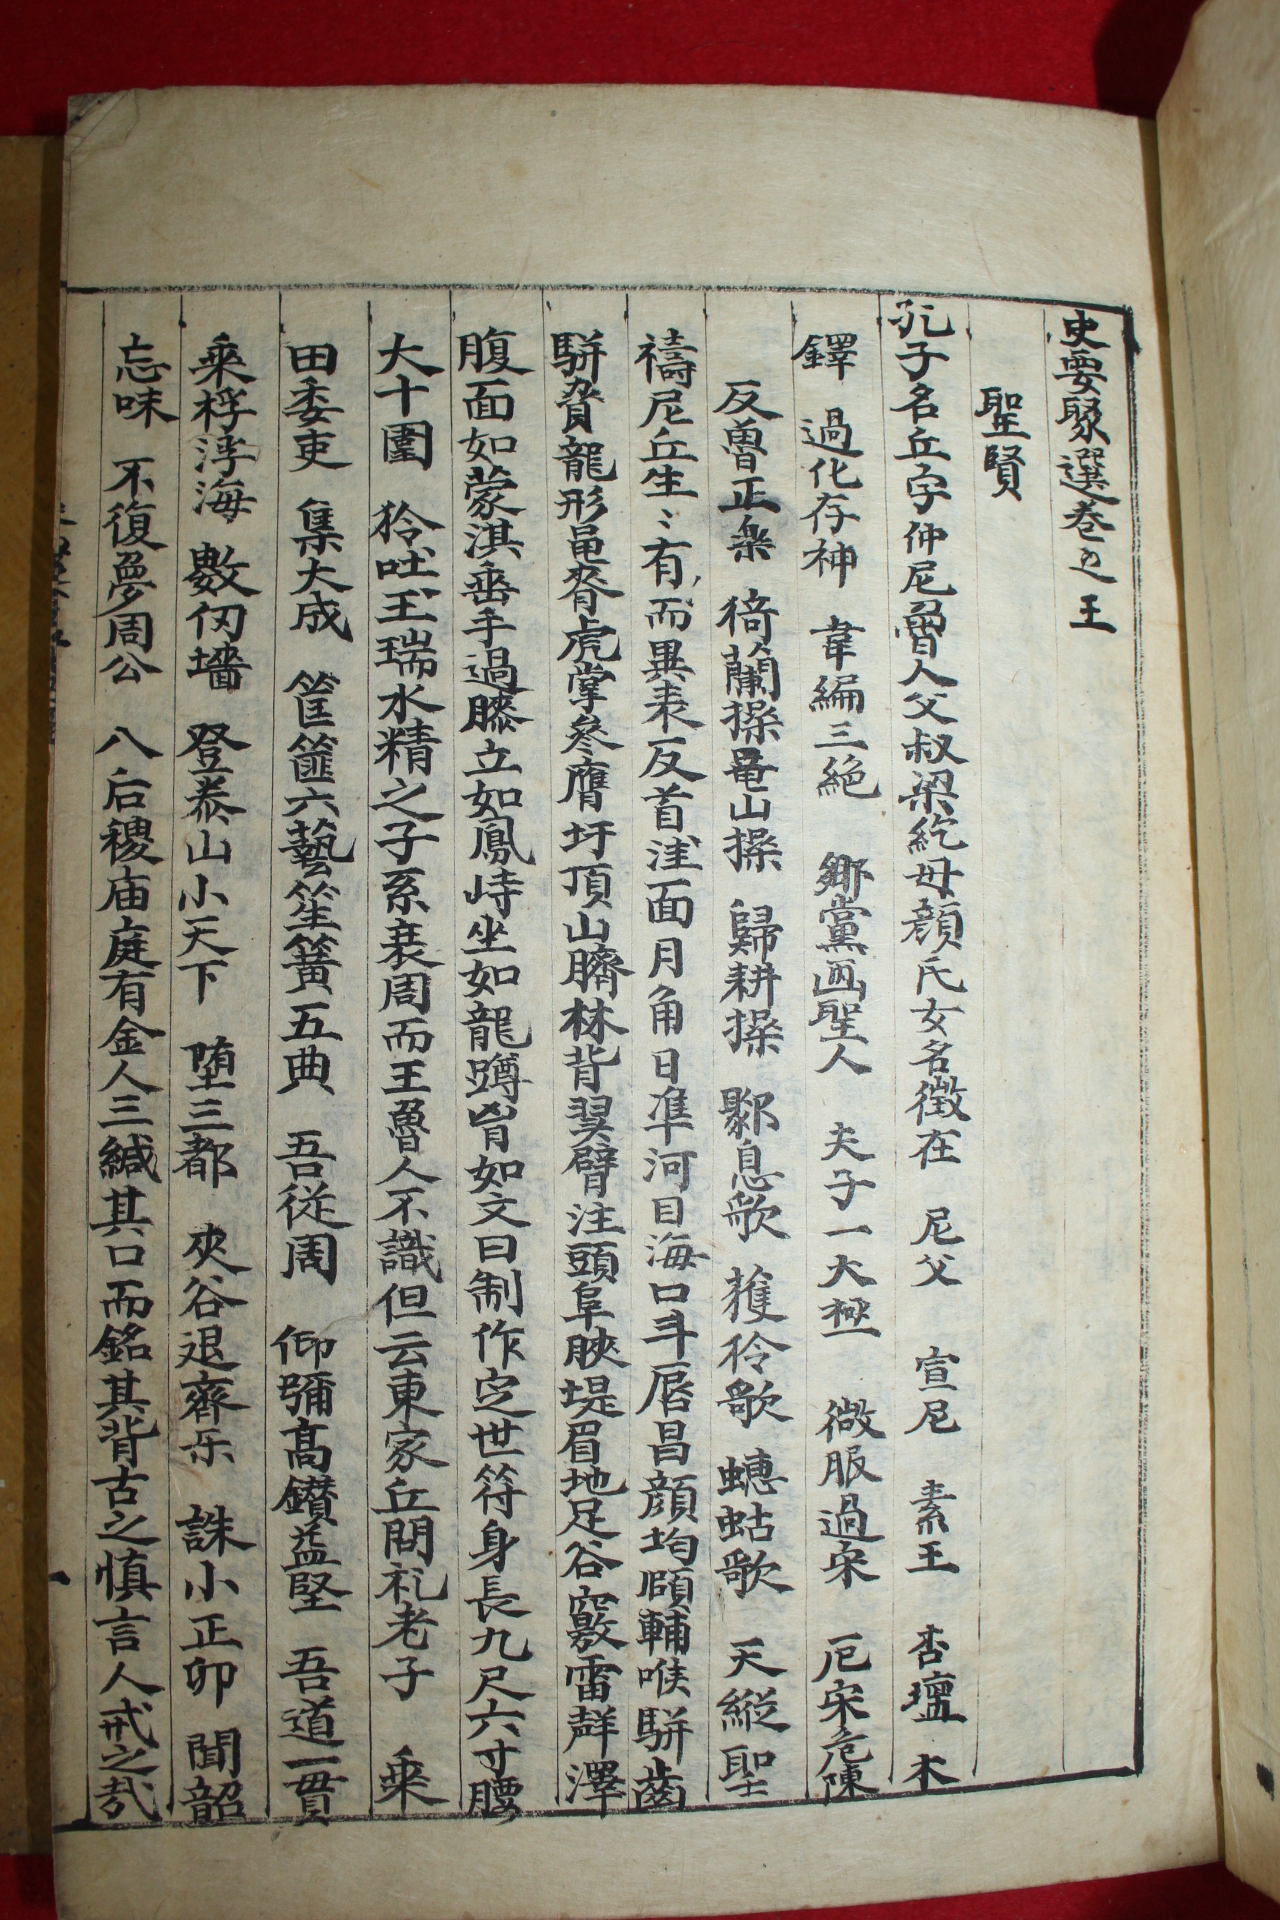 史要聚選卷之五
聖賢
孔子名丘字仲尼魯人父叔梁紇母顔氏女名徵在 尼父 宣尼 素王 杏壇 木
鐸 過化存神 韋編三絶 鄉黨画聖人 夫子一大極 微服過宋 厄宋危陳
反魯正樂 猗蘭操 龜山操 歸耕操 鄹息歌 獲狑歌 蟪蛄歌 天縱聖
禱尼丘生〻有而異表反首洼面月角日準河目海口斗唇昌顔均頥輔喉騈齒
騈齎龍形黽脊虎掌參膺圩頂山臍林背翼臂注頭阜腴堤眉地足谷竅雷聲澤
腹面如蒙淇垂手過膝立如鳳峙坐如龍蹲胷如文曰制作定世符身長九尺六寸腰
大十圍 狑吐玉瑞水精之子系衰周而王魯人不識但云東家丘問礼老子 乗
田委吏 集大成 筐篚六藝笙簧五典 吾從周 仰彌高鑚益堅 吾道一貫
乗桴浮海 數仞墻 登泰山小天下 墮三都 夾谷退齊兵 誅小正卯 聞韶
忘味 不復夢周公 八后稷庙庭有金人三緘其口而銘其背古之慎言人戒之㢤